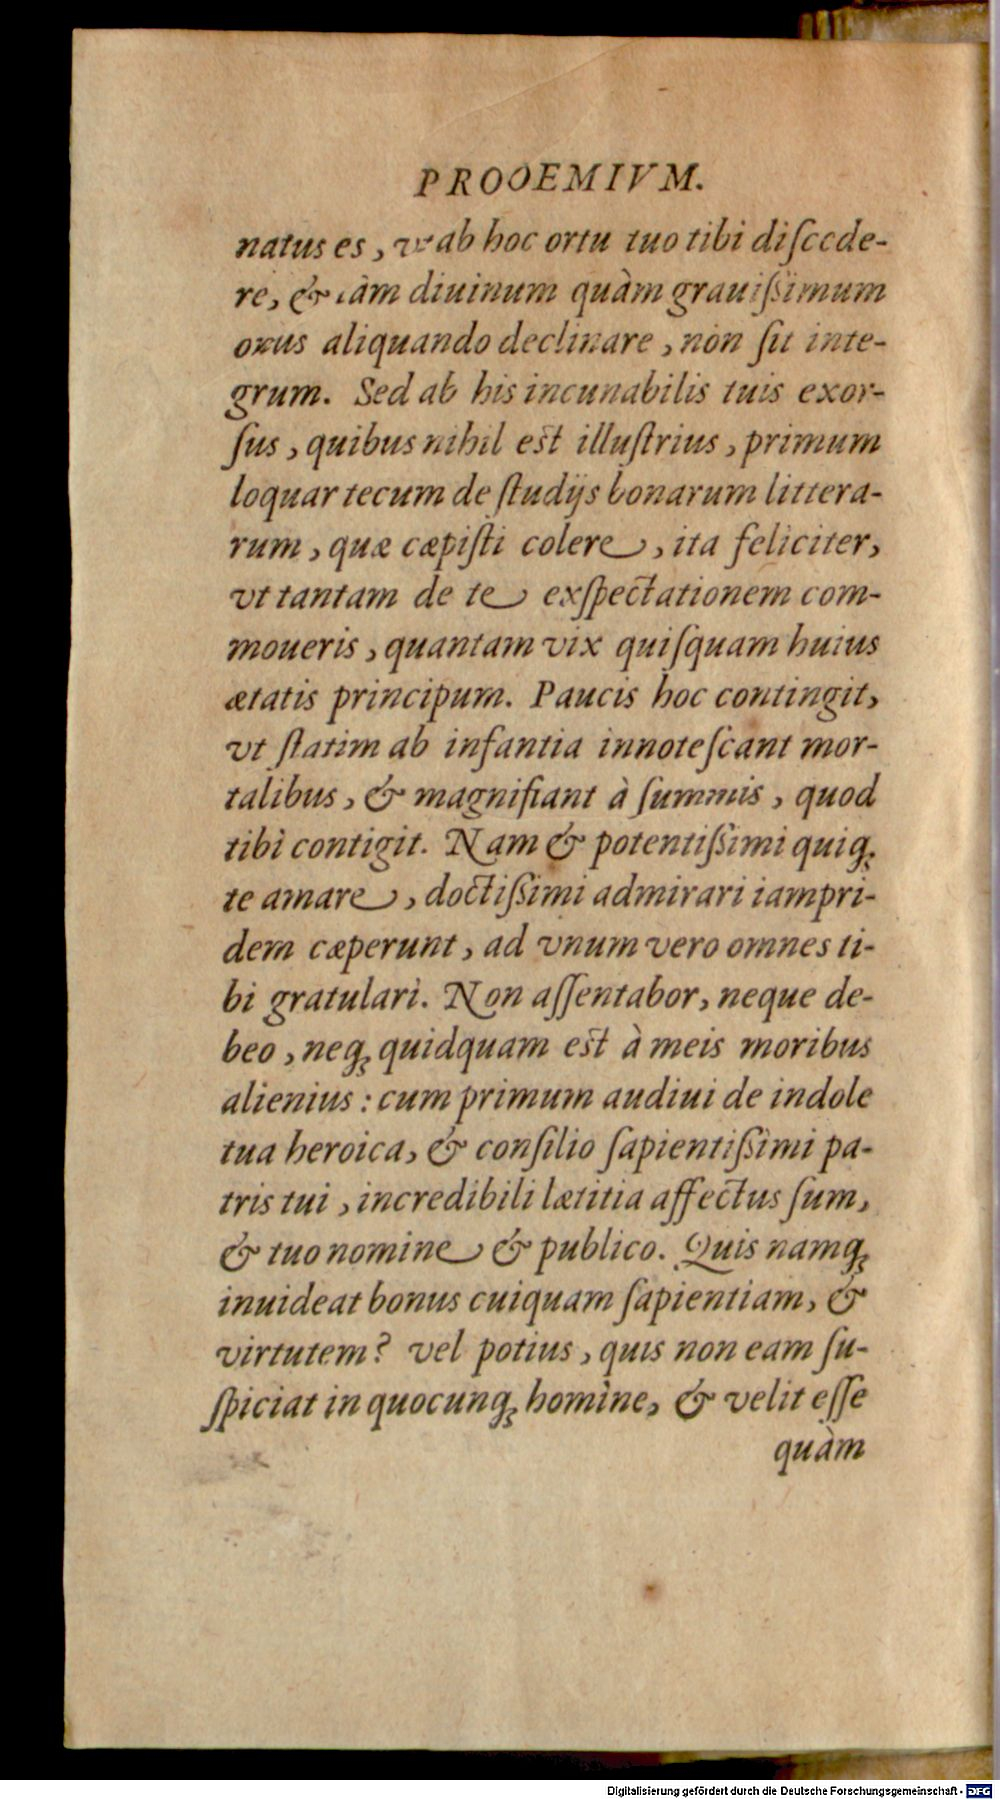 PROOEMIVM.
natus es, vt ab hoc ortu tuo tibi diſcede-
re, & tàm diuinum quàm grauiſsimum
onus aliquando declinare, nòn ſit inte-
grum. Sed ab his incunabilis tuis exor-
ſus, quibus nihil est illuſtrius, primum
loquar tecum de ſtudijs bonarum littera-
rum, quæ cæpiſti colere, ita feliciter,
vt tantam de te exſpectationem com-
moueris, quantam vix quiſquam huius
ætatis principum. Paucis hoc contingit,
vt ſtatim ab infantia innoteſcant mor-
talibus, & magnifiant à ſummis, quod
tibi contigit. Nam & potentiſsimi quiq;
te amare, doctiſsimi admirari iampri-
dem cæperunt, ad vnum vero omnes ti-
bi gratulari. Non aſſentabor, neque de-
beo, neq; quidquam est à meis moribus
alienius: cum primum audiui de indole
tua heroica, & conſilio ſapientiſsimi pa-
tris tui, incredibili lætitia affectus ſum,
& tuo nomine & publico. Quis namq;
inuideat bonus cuiquam ſapientiam, &
virtutem? vel potius, quis non eam ſu-
ſpiciat in quocunq; homine, & velit eſſe
quàm
Digitalisierung gefördert durch die Deutsche Forschungsgemeinschaft - DFG